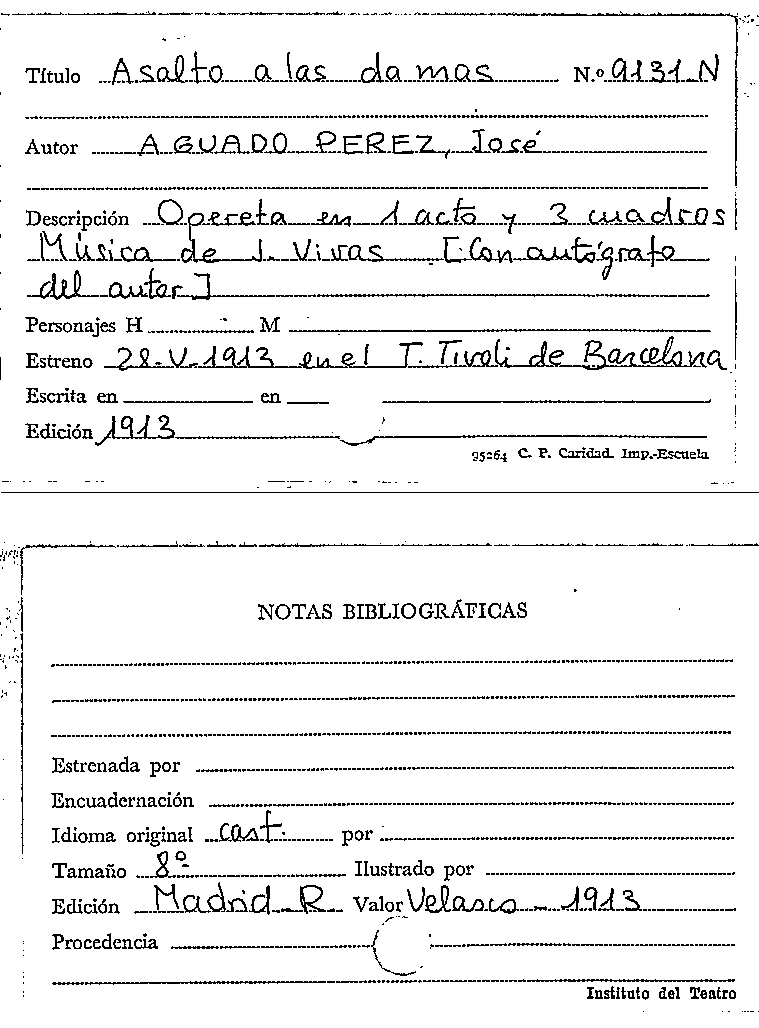 Título Asalto a las damas N.º 9131 N
Autor AGUADO PEREZ, José
Descripción Opereta en 1 acto y 3 cuadros
Música de J. Vivas [Con autógrafo
del autor]
Personajes H M
Estreno 28-V-1913 en el T. Tivoli de Barcelona
Escrita en en
Edición 1913
95264 C. P. Caridad. Imp.-Escuela
NOTAS BIBLIOGRÁFICAS
Estrenada por
Encuadernación
Idioma original cast. por
Tamaño 8º Ilustrado por
Edición Madrid R Valor Velasco - 1913
Procedencia
Instituto del Teatro